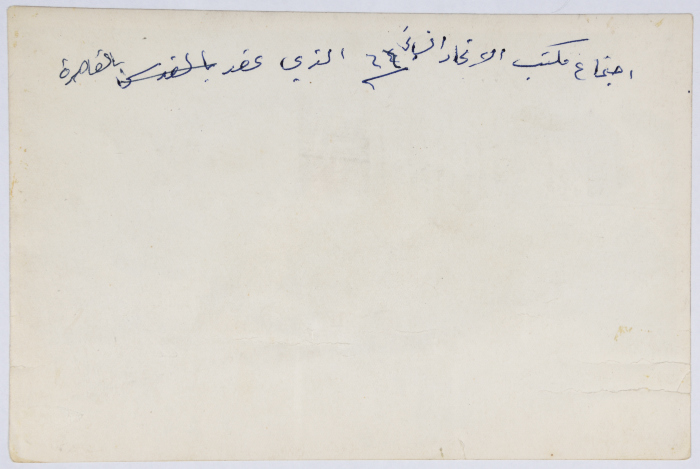 اجتماع مكتب الاتحاد النسائي ٦٤ الذي عقد بالقدس بالقاهرة